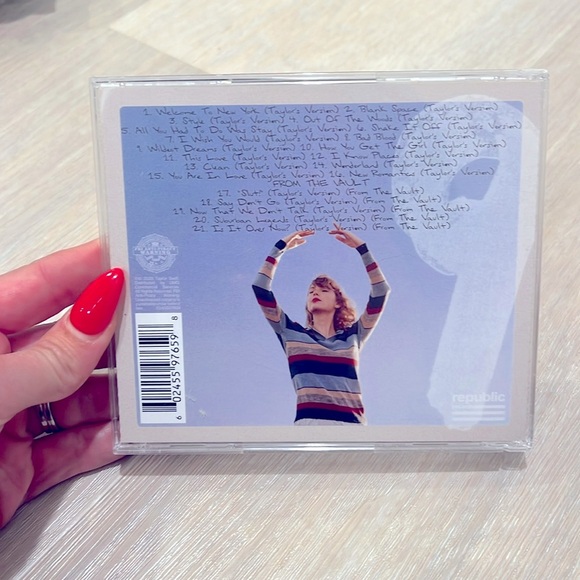 1. Welcome To New York (Taylor's Version) 2. Blank Space (Taylor's Version)
3. Style (Taylor's Version) 4. Out Of The Woods (Taylor's Version)
5. All You Had To Do Was Stay (Taylor's Version) 6. Shake It Off (Taylor's Version)
7. I Wish You Would (Taylor's Version) 8. Bad Blood (Taylor's Version)
9. Wildest Dreams (Taylor's Version) 10. How You Get The Girl (Taylor's Version)
11. This Love (Taylor's Version) 12. I Know Places (Taylor's Version)
13. Clean (Taylor's Version) 14. Wonderland (Taylor's Version)
15. You Are In Love (Taylor's Version) 16. New Romantics (Taylor's Version)
FROM THE VAULT
17. "Slut!" (Taylor's Version) (From The Vault)
18. Say Don't Go (Taylor's Version) (From The Vault)
19. Now That We Don't Talk (Taylor's Version) (From The Vault)
20. Suburban Legends (Taylor's Version) (From The Vault)
21. Is It Over Now? (Taylor's Version) (From The Vault)
6 02455 97659 8
republic